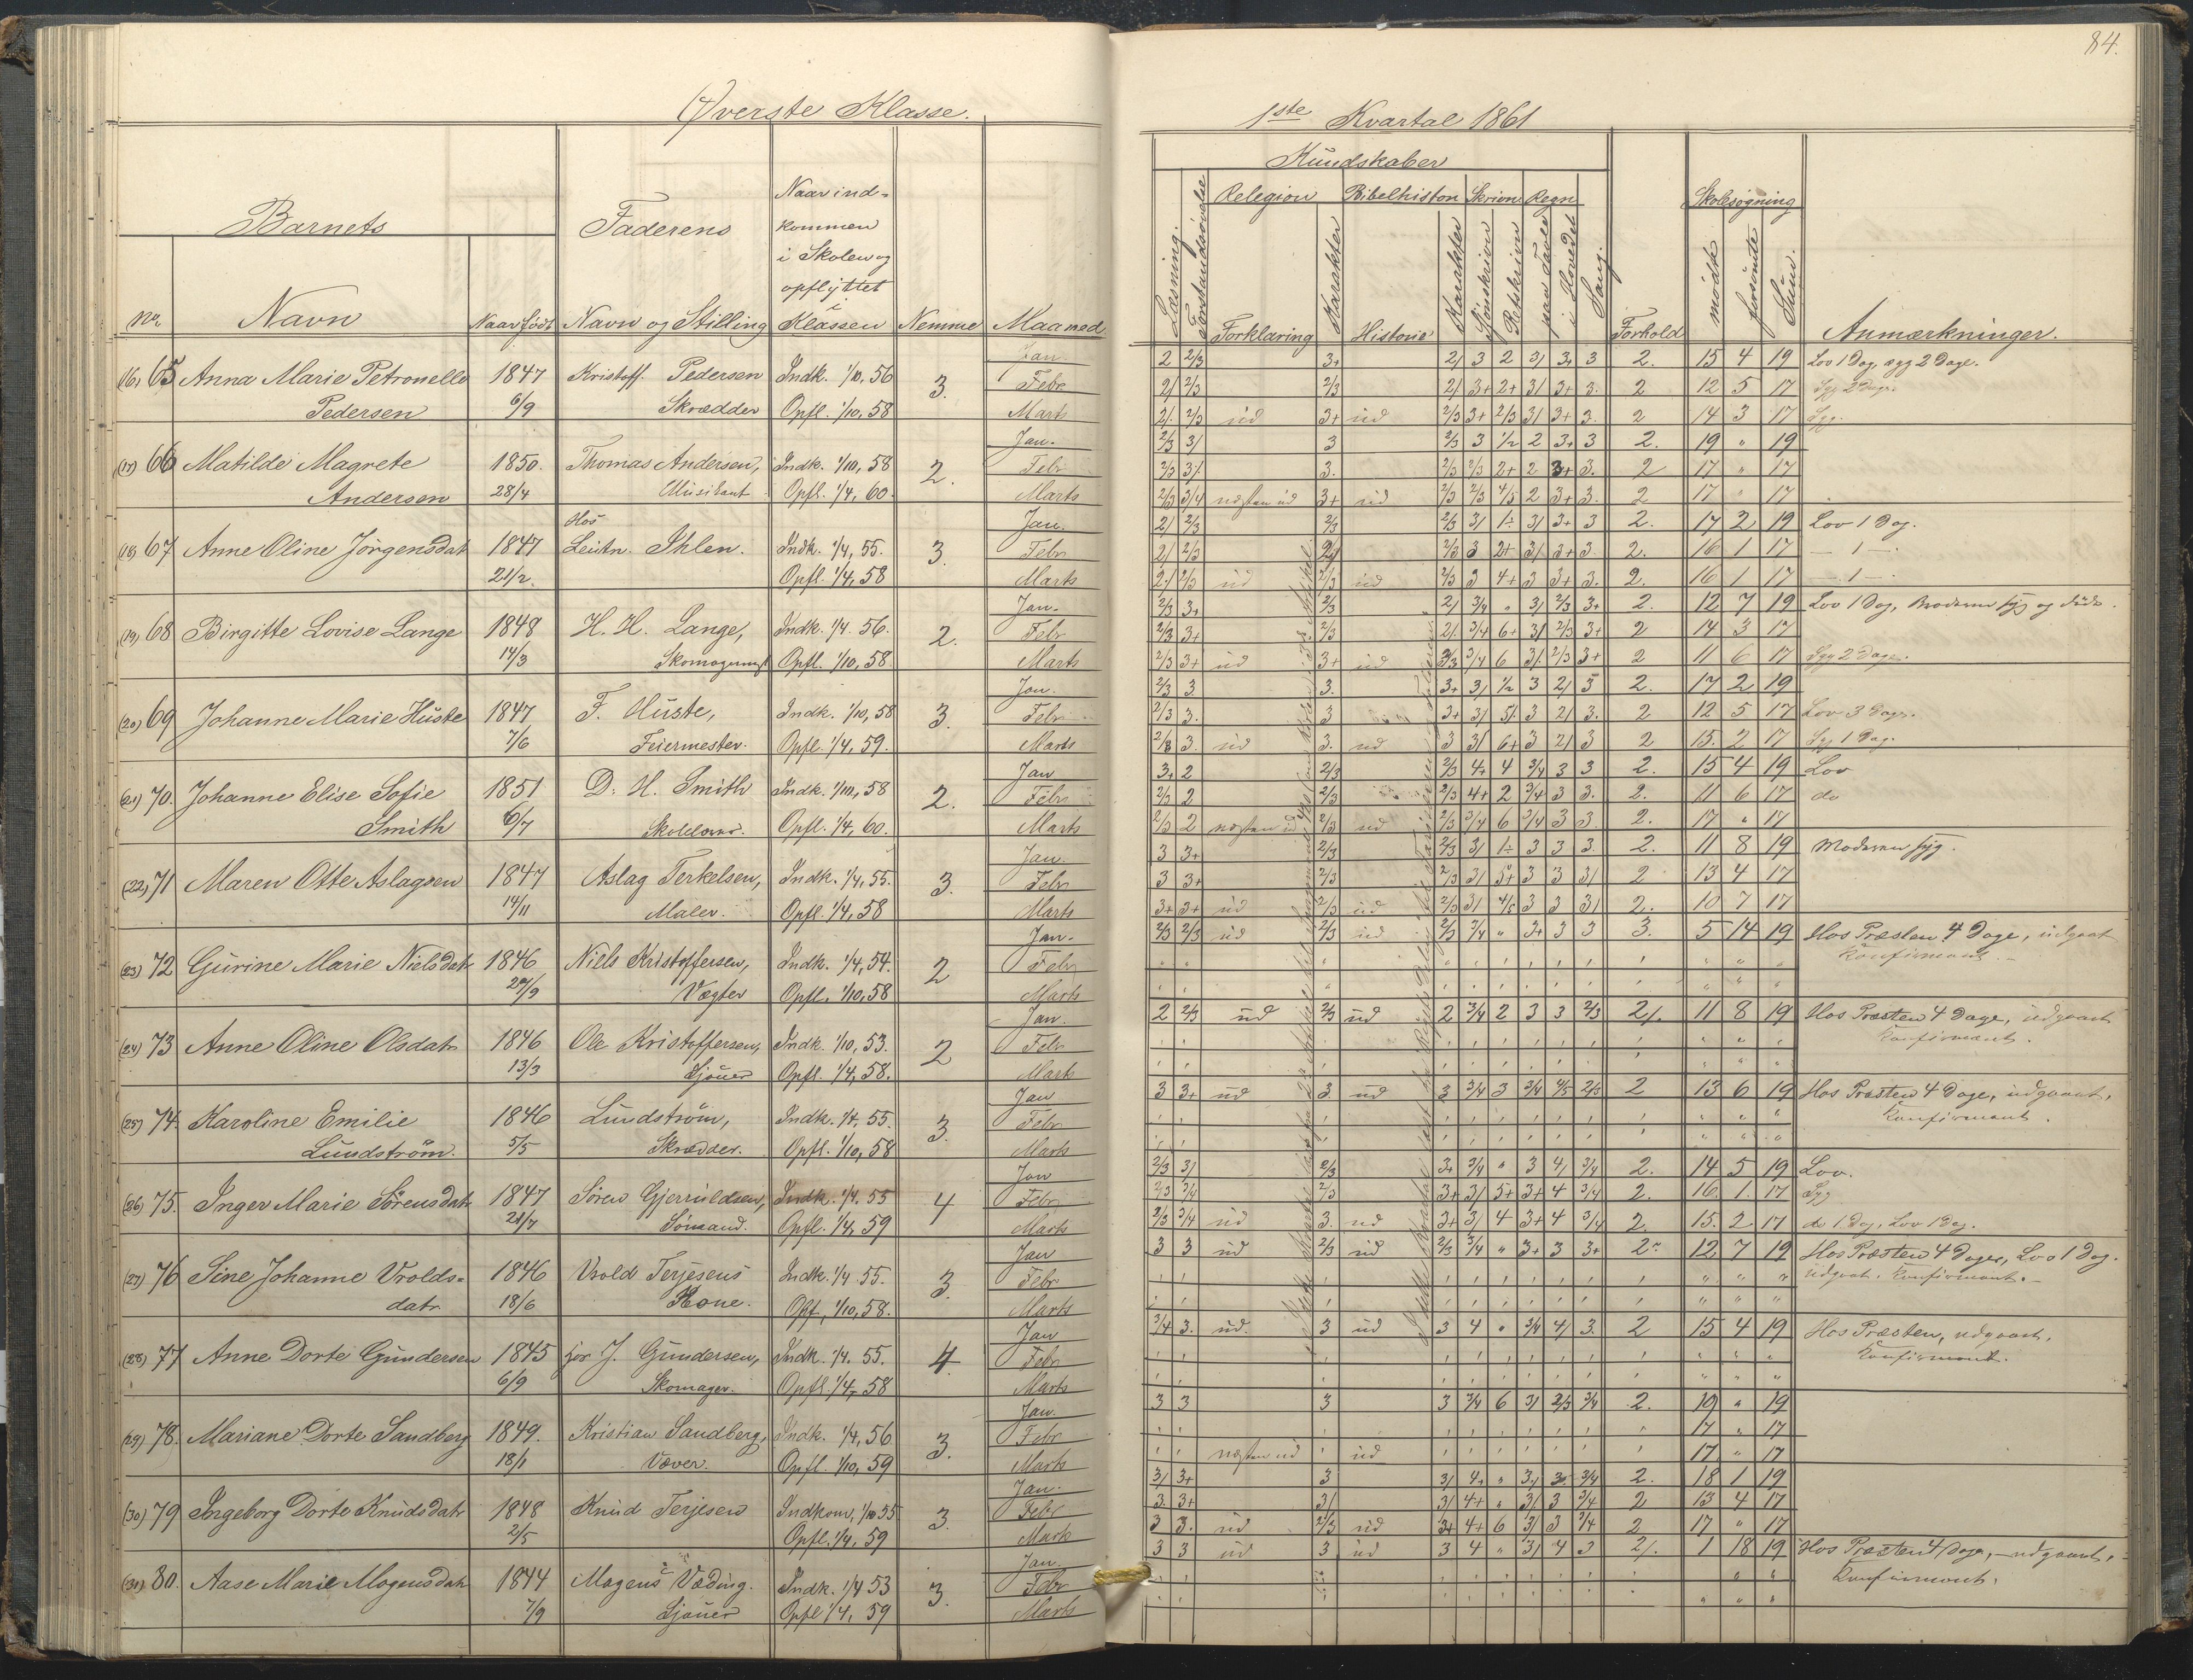 84.
Øverste Klasse.
1ste Kvartal 1861
Barnets
Faderens
Naar ind-
kommen
i Skolen og
opflyttet
i
No. Navn Naar født Navn og Stilling Klassen Nemme Maaned
Kundskaber
Læsning. Religion Bibelhistori Skrivn. Regn
Forklaring Karakter Historie Karakter Skjönskrivn Retskrivn paa Tavle i Hovedet Sang.
Forhold
Skolesøgning
mødte forsömte Sum.
Anmærkninger.
(16) 65 Anna Marie Petronelle 1847 Kristoff. Pedersen Indk. 1/10, 56 3. Jan. 2 2/3 3+ 2/ 3 2 3/ 3+ 3 2. 15 4 19 Lov 1 Dag, syg 2 Dage.
Febr 2/ 2/3 2/3 2/ 3+ 2+ 3/ 3+ 3. 2 12 5 17 Syg 2 Dage.
Pedersen 6/9 Skrædder Opfl. 1/10, 58 Marts 2/. 2/3 ud 3+ ud 2/3 3+ 2/3 3/ 3+ 3. 2 14 3 17 Syg.
(17) 66 Matilde Magrete 1850. Thomas Andersen, Indk. 1/10, 58 2. Jan. 2/3 3/ 3 2/3 3 1/2 2 3+ 3 2. 19 " 19
Febr 2/3 3/. 3. 2/3 2/3 2+ 2 3+ 3. 2 17 " 17
Andersen 28/4 Musikant Opfl. 1/4, 60. Marts 2/3 3/4 næsten ud 3+ ud 2/3 2/3 4/5 2 3+ 3. 2 17 " 17
(18) 67 Anne Oline Jörgensdat 1847 Hos Leutn. Ihlen. Indk. 1/4, 55. 3. Jan. 2/ 2/3 2/3 2/3 3/ 1÷ 3/ 3+ 3 2. 17 2 19 Lov 1 Dag.
Febr 2/ 2/3 2/3 3 2+ 3/ 3+ 3 2. 16 1 17 — 1 —.
21/2. Opfl. 1/4, 58 Marts 2/ 2/3 ud 2/3 ud 2/3 3 4+ 3 3+ 3. 2. 16 1 17 — 1 —
(19) 68 Birgitte Lovise Lange 1848 H. H. Lange, Indk. 1/4. 56. 2. Jan. 2/3 3+ 2/3 2/ 3/4 " 3/ 2/3 3+ 2. 12 7 19 Lov 1 Dag, Moderen syg og
Febr 2/3 3+ 2/3 2/. 3/4 6+ 3/ 2/3 3+ 2 14 3 17
14/3 Opfl. 1/10, 58. Marts 2/3 3+ ud 3+ ud 3/4 6 3/. 2/3 3+ 2 11 6 17 Syg 2 Dage.
(20) 69 Johanne Marie Huste 1847 F. Huste, Indk. 1/10, 58 3. Jan. 2/3 3 3. 3+ 3/ 1/2 3 2/ 3 2. 17 2 19
Febr 2/3 3. 3 3+ 3/ 5/. 3 2/ 3. 2 12 5 17 Lov 3 Dage.
7/6 Feiermester. Opfl. 1/4, 59. Marts 2/3 3. ud 3. ud 3 3/ 6+ 3 2/ 3 2 15. 2 17 Syg 1 Dag.
(21) 70. Johanne Elise Sofie 1851 D. H. Smith Indk. 1/10, 58 2. Jan 3+ 2 2/3 2/3 4+ 4 3/4 3 3 2. 15 4 19 Lov
Febr 2/3 2 2/3 2/3 4+ 2 3/4 3 3. 2. 11 6 17 do
Smith 6/7 Opfl. 1/4, 60. Marts 2/3 2 næsten ud 2/3 ud 2/3 3/4 6 3/4 3 3. 2. 17 " 17
(22) 71 Maren Otte Aslagsen 1847 Aslag Terkelsen, Indk. 1/4, 55. 3. Jan. 3 3+ 2/3 2/3 3/ 1÷ 3 3 3 2. 11 8 19 Moderen syg.
Febr 3 3+ 2/3 2/3 3/ 3+ 3 3 3/ 2 13 4 17
14/11 Maler. Opfl. 1/4, 58 Marts 3+ 3+ ud 2/3 ud 2/3 3/ 4/5 3 3 3/ 2. 10 7 17
(23) 72 Gurine Marie Nielsdatr 1846 Niels Kristoffersen, Indk. 1/4, 54. 2 Jan. 2/3 2/3 ud 2/3 ud 2/3 3/4 " 3+ 3 3 3. 5 14 19 Hos Præsten 4 Dage, udgaat
Febr Konfirmant.
29/9 Vægter Opfl. 1/10, 58 Marts
(24) 73 Anne Oline Olsdatr 1846 Ole Kristoffersen, Indk. 1/10, 53. 2 Jan. 2 2/3 ud 2/3 ud 2 3/4 2 3 3 2/3 2/. 11 8 19 Hos Præsten 4 Dage, udgaaet
Febr Konfirmant.
13/3 Sjouer Opfl. 1/4, 58. Marts
(25) 74. Karoline Emilie 1846 Lundström, Indk. 1/4, 55. 3. Jan 3 3+ ud 3 ud 3 3/4 3 3/4 4/5 2/3 2 13 6 19 Hos Præsten 4 Dage, udgaaet,
Febr Konfirmant.
Lundström. 5/5 Skrædder. Opfl. 1/10, 58 Marts
(26) 75. Inger Marie Sörensdatr 1847 Sören Gjeruldsen, Indk. 1/4. 55 4 Jan 2/3 3/ 2/3 3+ 3/4 " 3 4/ 3/4 2. 14 5 19 Lov.
Febr 2/3 3/4 2/3 3+ 3/ 5+ 3+ 4 3/4 2. 16. 1. 17 Syg
21/7 Sömand. Opfl. 1/4, 59 Marts 2/3 3/4 ud 3. ud 3+ 3/ 4 3+ 4 3/4 2. 15. 2 17 do 1 Dag, Lov 1 Dag.
(27) 76 Sine Johanne Vrolds- 1846 Vrold Terjesens Indk. 1/4 55. 3. Jan 3 3 ud 2/3 ud 2/3 3/4 " 3+ 3 3+ 2 12 7 19 Hos Præsten 4 Dage, Lov 1 Dag.
Febr udgaat. Konfirmant.
datr 18/6 Kone. Opf, 1/10, 58. Marts
(28) 77 Anne Dorte Gundersen 1845 J. Gundersen, Indk. 1/4. 55. 4. Jan 3/4 3. ud. 3 ud 3 4 " 3/4 4/ 3. 2 15 4 19 Hos Præsten, udgaaet,
Febr Konfirmant.
6/9 Skomager. Opfl. 1/4, 58 Marts
(29) 78. Mariane Dorte Sandberg 1849. Kristian Sandberg, Indk. 1/4, 56 3. Jan. 3 3 3 3 3/4 6 3/ 2/3 3/4 2. 19 " 19
Febr 17 " 17
18/1 Væver. Opfl. 1/10, 59 Marts næsten ud ud 17 " 17
(30) 79 Ingeborg Dorte Knudsdatr 1848 Knud Terjesen Indkom, 1/10 55 3. Jan. 3/ 3+ 3 3/ 4+ " 3/ 3 3/4 2. 18 1 19
Febr 3. 3+ 3/ 3/ 4+ " 3/ 3 3/4 2 13 4 17
2/5 Opfl. 1/4, 59 Marts 3 3. ud 2/3 ud 3+ 4+ 6 3/ 3 3/4 2 17 " 17
(31) 80. Aase Marie Mogensdatr 1844 Mogens Væding. Indk. 1/4 53 3. Jan. 3 3 ud 3 ud 3 4 " 3/ 4 3 2/. 1 18 19 Hos Præsten 4 Dage, udgaaet,
Febr Konfirmant.
7/9 Sjouer Opfl 1/4, 59 Marts